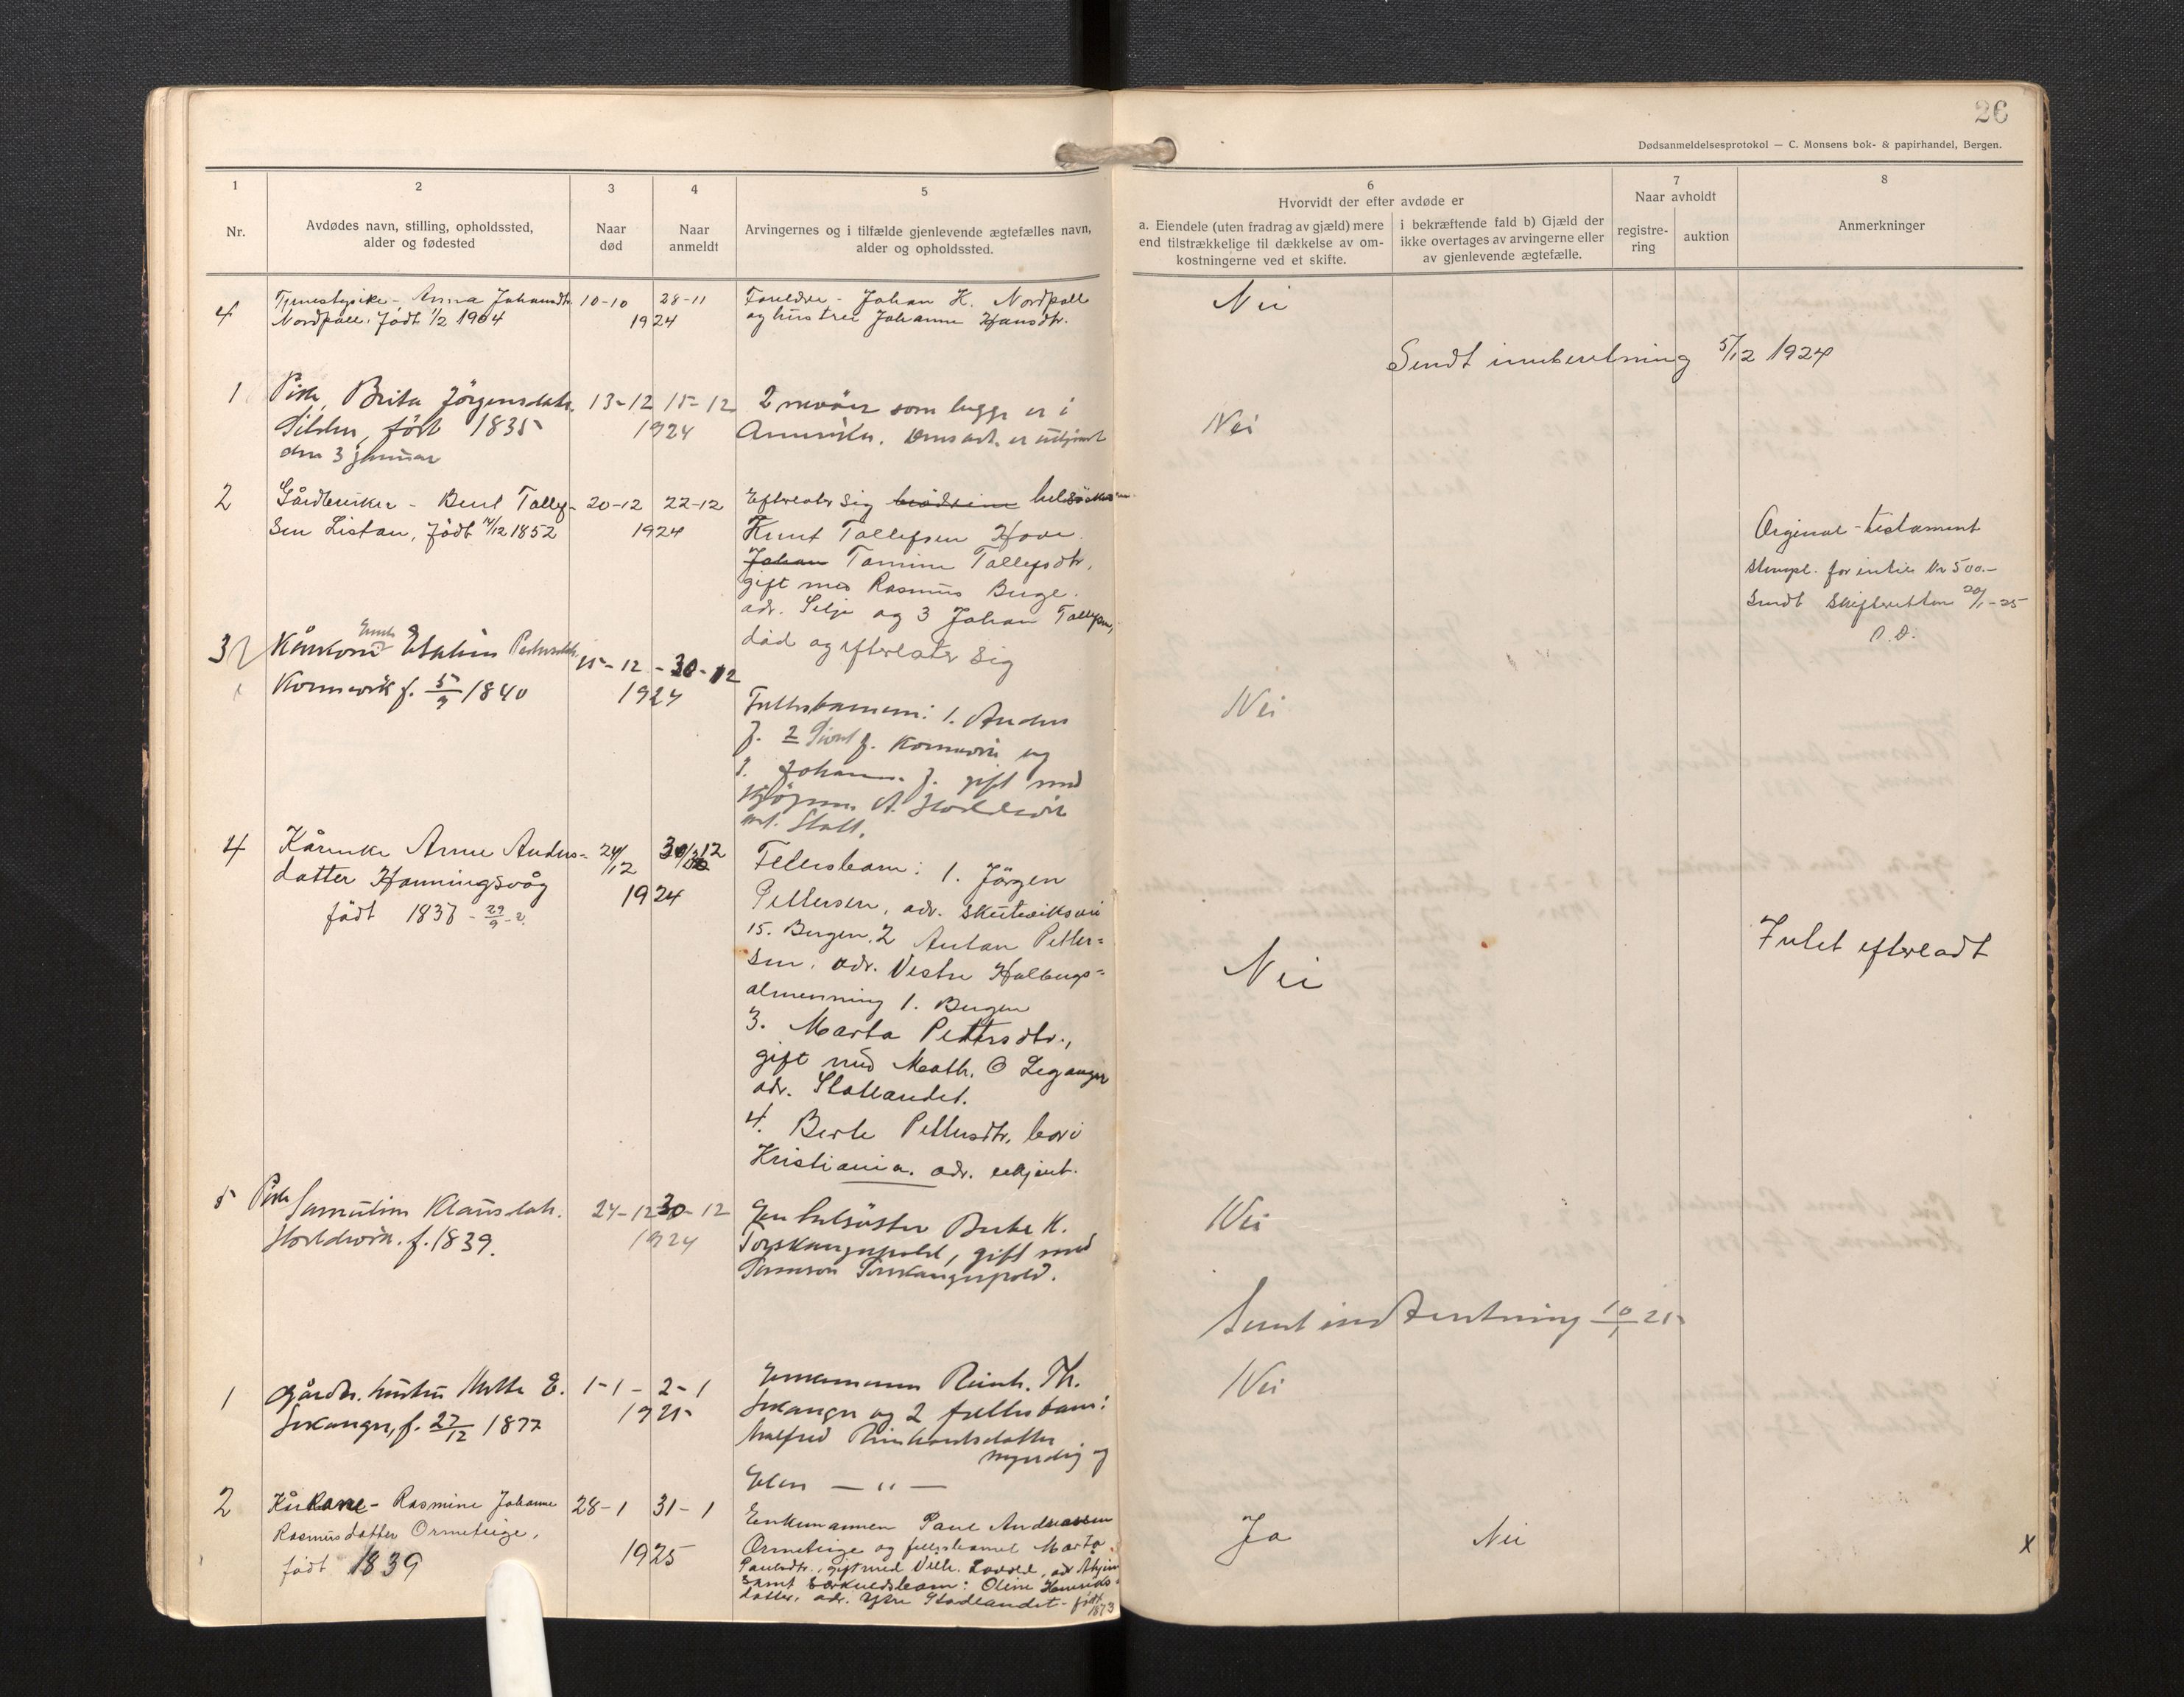 26
Dødsanmeldelsesprotokol — C. Monsens bok- & papirhandel, Bergen.
1
Nr.
2
Avdødes navn, stilling, opholdssted,
alder og fødested
3
Naar
død
4
Naar
anmeldt
5
Arvingernes og i tilfælde gjenlevende ægtefælles navn,
alder og opholdssted.
6
Hvorvidt der efter avdøde er
a. Eiendele (uten fradrag av gjæld) mere
end tilstrækkelige til dækkelse av om-
kostningerne ved et skifte.
i bekræftende fald b) Gjæld der
ikke overtages av arvingerne eller
av gjenlevende ægtefælle.
7
Naar avholdt
registre-
ring
auktion
8
Anmerkninger
4
Tjenestepike - Anna Johansdtr.
Nordpoll. Født 1/2 1904
10-10 28-11
1924
Foreldre - Johan K. Nordpoll
og hustru Johanne Hansdtr.
Nei
Sendt innberetning 5/12 1924
1
Pike, Brita Jörgensdatr.
födt 1835
den 3 januar
13-12 15-12
1924
2 nevöer som begge er i
Amerika.
Nei
2
Gårdbruker - Bent Tollef-
sen Listau, Født 14/12 1852
20-12 22-12
1924
Efterlater sig helsösken
Knut Tollefsen Hove.
Johan Tomine Tollefsdtr,
gift med Rasmus Berge.
adr. Selje og 3 Johan Tollefsen,
död og efterlater sig
Orginal - testament
stempl. for inntil Kr 500.-
Sendt Skifteretten 20/1-25
P.D.
3
Kårkone Enke Pedersdtr.
f. 5/9 1840
15-12 - 30-12
1924
Fellesbarnene: 1. Anders
J. 2 J. og
3. Johan. J. gift med
A.
adr. Statt.
Nei
4
Kårenke Anne Anders-
datter Honningsvåg
født 1838 - 29/9 -
24/12 30/12
1924
Fellesbarn: 1. Jörgen
Pettersen, adr. Skuteviksvei
15. Bergen. 2 Anton Petter-
sen. adr. Vestre Holbergs-
almenning 1. Bergen
3. Marta Pettersdtr.,
gift med Math. O Leganger
adr. Statlandet.
4. Berte Pettersdtr. bor i
Kristiania. adr. ukjent.
Nei
Intet efterladt
5
Pike Klausdatr.
f. 1839.
24-12 30-12
1924
En helsöster Berte K.
gift med
Nei
Sendt indberetning 10/1 25
1
Gårdbr. hustru Mette E.
f. 27/12 1877
1-1 - 2-1
1925
Enkemann Reinh. Th.
og 2 fellesbarn:
Reinhardsdatter
myndig og
Elen — " —
Nei
2
Kårkone - Rasmine Johanne
Rasmusdatter Ormeteige,
født 1839
28-1 31-1
1925
Enkemannen Paul Andreassen
Ormeteige og fellesbarnet Marta
Paulsdtr., gift med Vilh. adr.
samt særkuldsbarn: Oline
datter, adr. Ytre Stadlandet - født
1873
Ja
Nei
x